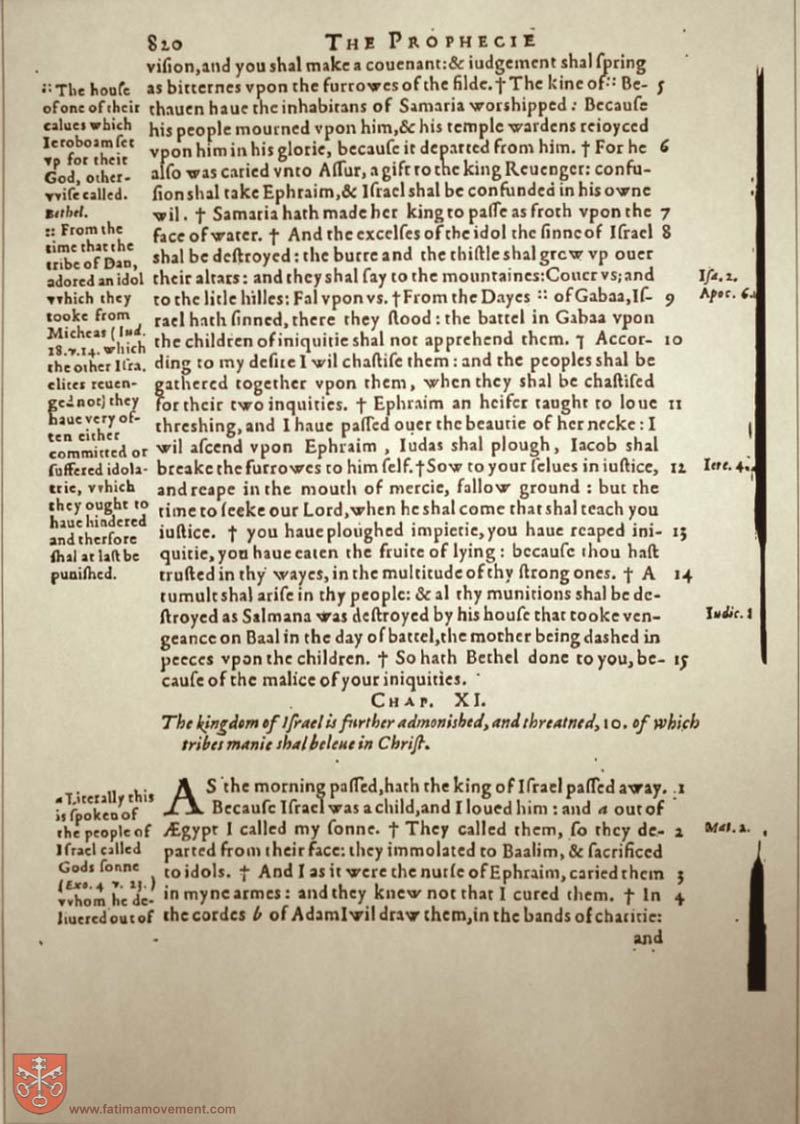 820 THE PROPHECIE
viſion,and you shal make a couenant:& iudgement shal ſpring
as bitternes vpon the furrowes of the filde. † The kine of :: Be- 5
thauen haue the inhabitans of Samaria worshipped : Becauſe
his people mourned vpon him,& his temple wardens reioyced
vpon him in his glorie, becauſe it departed from him. † For he 6
alſo was caried vnto Aſſur, a gift to the king Reuenger: confu-
ſion shal take Ephraim,& Iſrael shal be confunded in his owne
wil. † Samaria hath made her king to paſſe as froth vpon the 7
face of water. † And the excelſes of the idol the ſinne of Iſrael 8
shal be deſtroyed : the burre and the thiſtle shal grow vp ouer
their altars : and they shal ſay to the mountaines:Couer vs; and
to the litle hilles: Fal vpon vs. †From the Dayes :: of Gabaa, Iſ- 9
rael hath ſinned, there they ſtood : the battel in Gabaa vpon
the children of iniquitie shal not apprehend them. ┐ Accor- 10
ding to my deſire I wil chaſtiſe them : and the peoples shal be
gathered together vpon them, when they shal be chaſtiſed
for their two inquities. † Ephraim an heifer taught to loue 11
threshing, and I haue paſſed ouer the beautie of her necke : I
wil aſcend vpon Ephraim , Iudas shal plough, Iacob shal
breake the furrowes to him ſelf. †Sow to your ſelues in iuſtice, 12
and reape in the mouth of mercie, fallow ground : but the
time to ſeeke our Lord, when he shal come that shal teach you
iuſtice. † you haue ploughed impietie, you haue reaped ini- 13
quitie, you haue eaten the fruite of lying : becauſe thou haſt
truſted in thy wayes, in the multitude of thy ſtrong ones. † A 14
tumult shal ariſe in thy people: & al thy munitions shal be de-
ſtroyed as Salmana was deſtroyed by his houſe that tooke ven-
geance on Baal in the day of battel,the mother being dashed in
peeces vpon the children. † So hath Bethel done to you, be- 15
cauſe of the malice of your iniquities.
:: The houſe
of one of their
calues which
Ieroboam ſet
vp for their
God, other-
vviſe called.
Bethel.
:: From the
time that the
tribe of Dan,
adored an idol
vvhich they
tooke from
Micheas (Iud.
18.v.14. which
the other Iſra.
elites reuen-
ged not) they
haue very of-
ten either
committed or
ſuffered idola-
trie, vvhich
they ought to
haue hindered
and therfore
shal at laſt be
punished.
Iſa. 2.
Apoc. 6.
Iere. 4.
Iudic. 8
CHAP. XI.
The kingdom of Iſrael is further admonished, and threatned, 10. of which
tribes manie shal beleue in Chriſt.
AS the morning paſſed,hath the king of Iſrael paſſed away. 1
Becauſe Iſrael was a child,and I loued him : and a out of
Ægypt I called my ſonne. † They called them, ſo they de- 2
parted from their face: they immolated to Baalim, & ſacrificed
to idols. † And I as it were the nurſe of Ephraim, caried them 3
in myne armes : and they knew not that I cured them. † In 4
the cordes b of Adam I wil draw them,in the bands of charitie:
and
a Literally this
is ſpoken of
the people of
Iſrael called
Gods ſonne
(Exo. 4 v. 23.)
vvhom he de-
liuered out of
Mat. 2.
www.fatimamovement.com